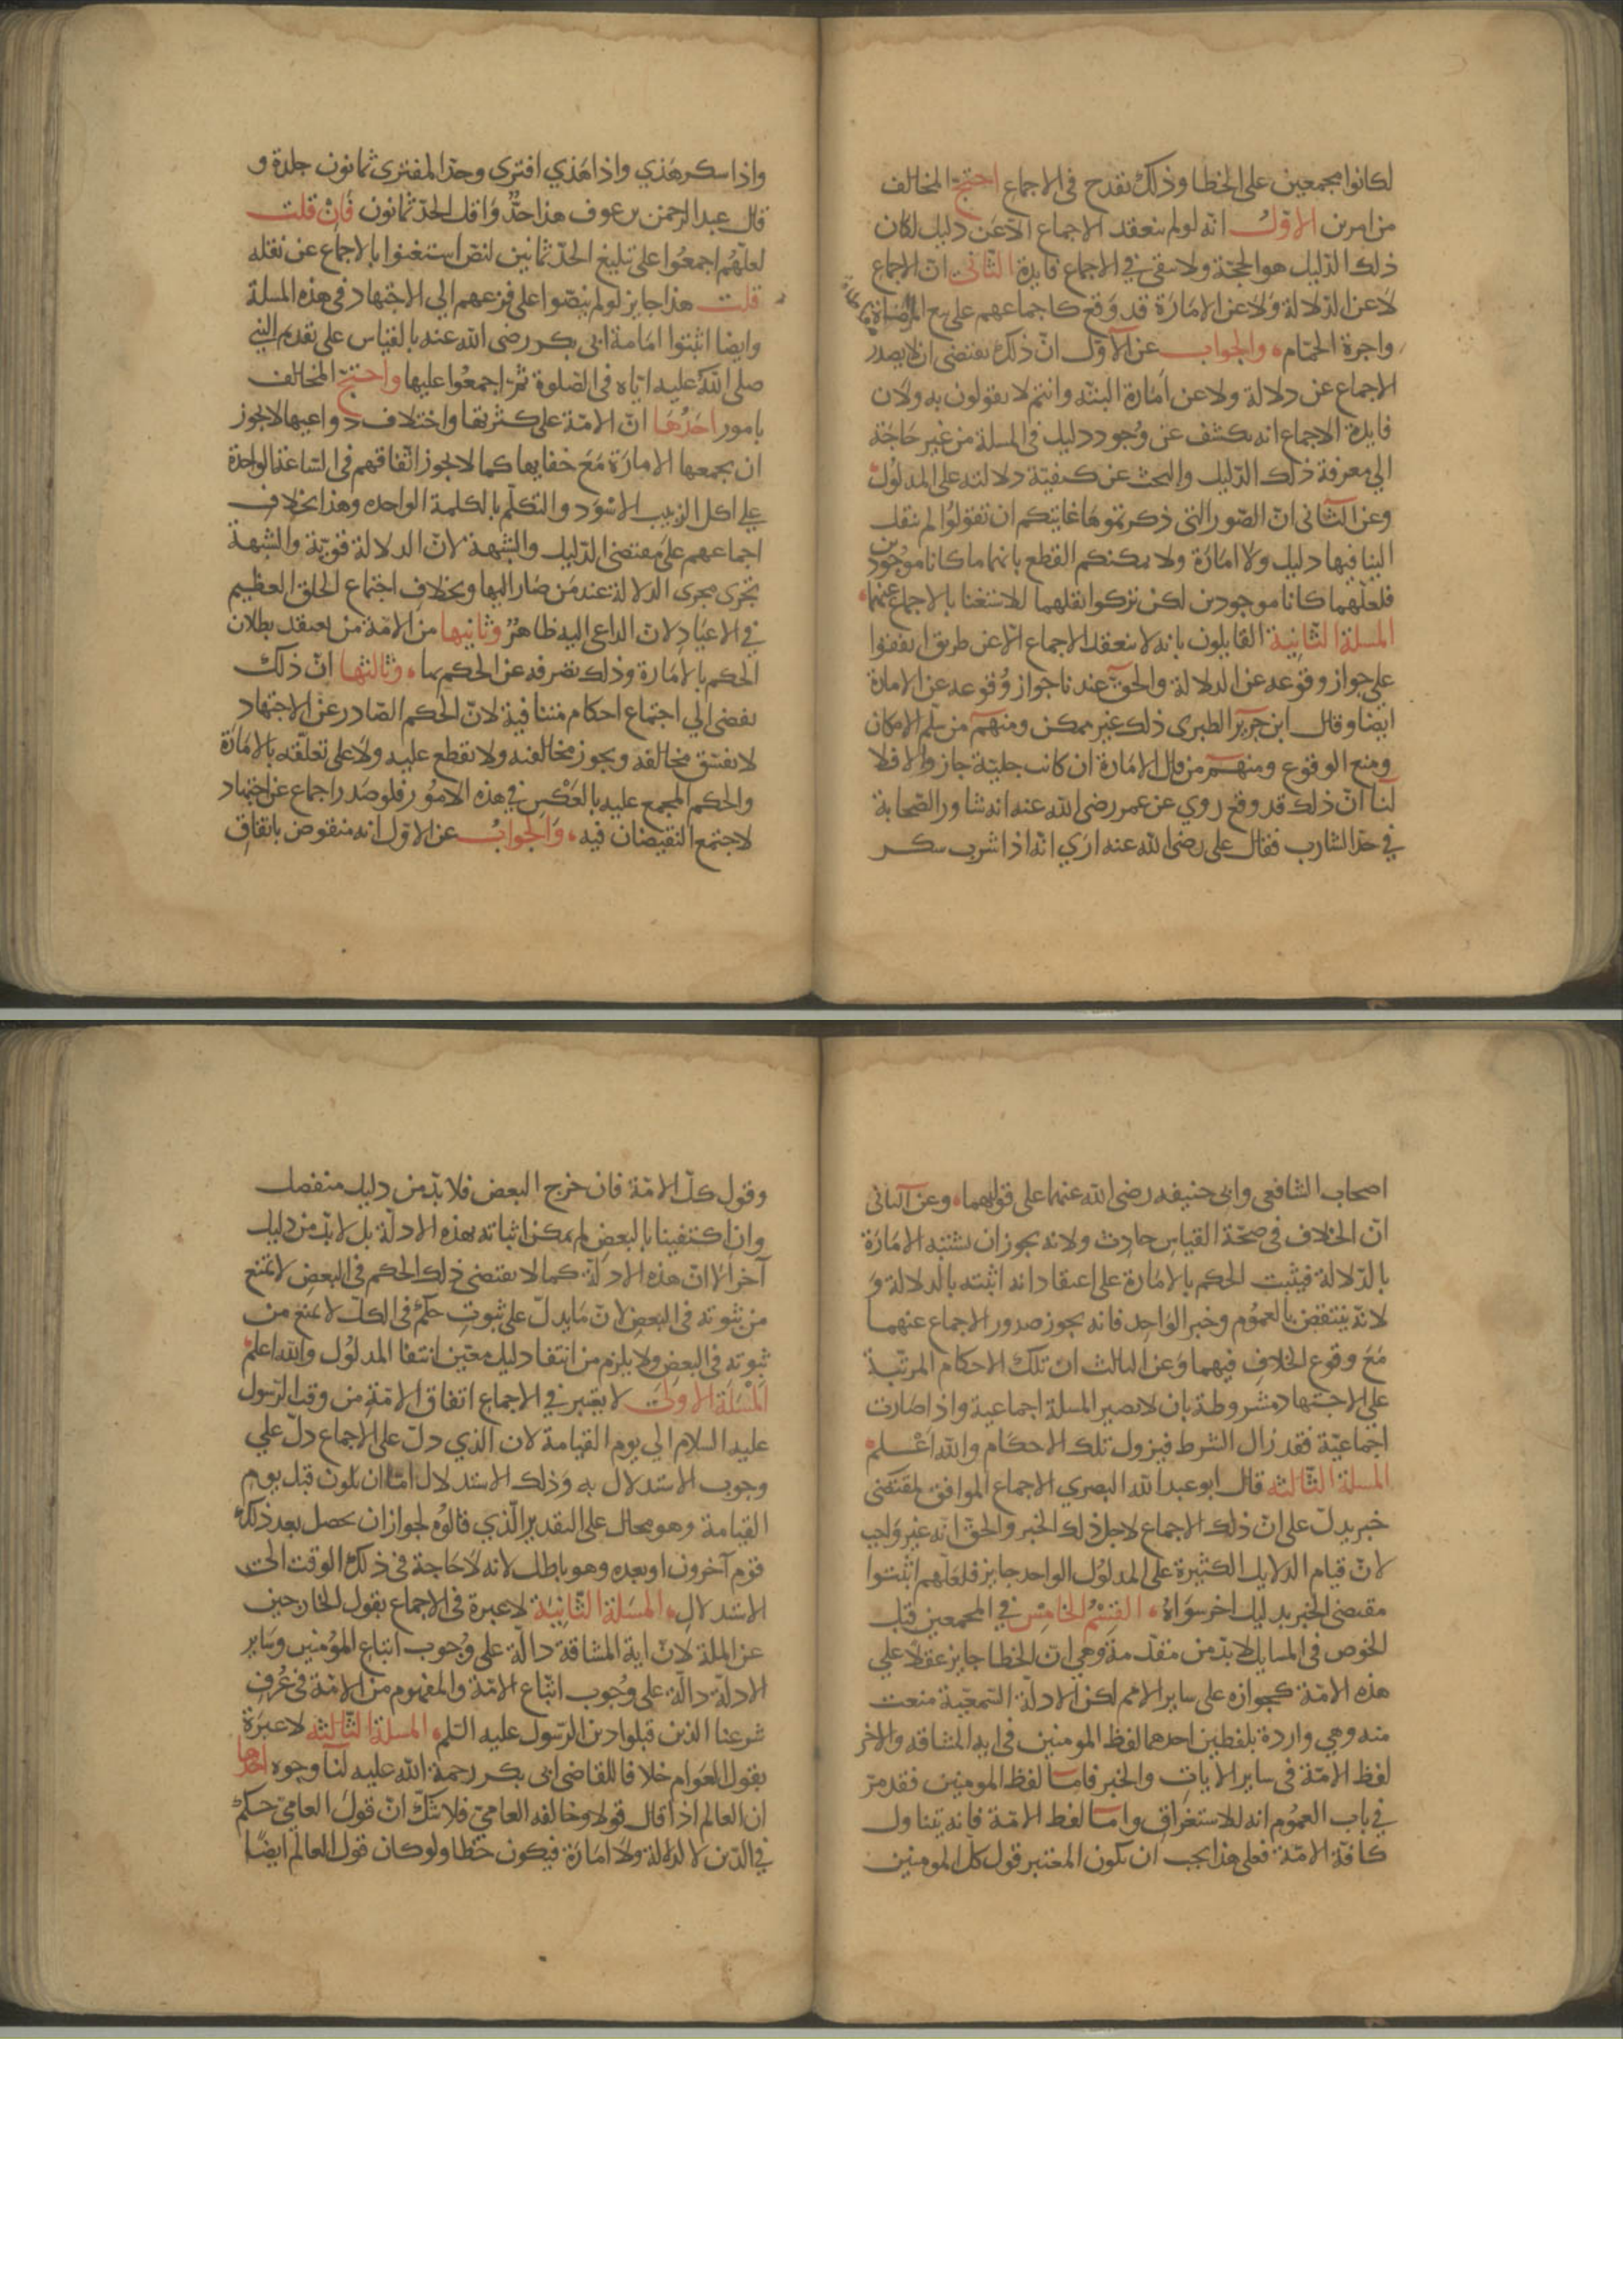 لكانوا مجمعين على الخطا وذلك نقدح فى الاجماع احتج المخالف
من امرين الاول انه لو لم ينعقد الاجماع الا عن دليل لكان
ذلك الدليل هو الحجة ولا يبقى في الاجماع فايدة الثانى ان الاجماع
لا عن الدلالة ولا عن الامارة قد وقع كاجماعهم على بيع المراضاة
واجرة الحمام والجواب عن الاول ان ذلك يقتضى ان لا يصدر
الاجماع عن دلالة ولا عن امارة البتة وانتم لا تقولون به ولان
فايدة الاجماع انه يكشف عن وجود دليل فى المسلة من غير حاجة
الي معرفة ذلك الدليل والبحث عن كيفية دلالته على المدلول
وعن الثانى ان الصور التى ذكرتموها غايتكم ان تقولوا لم ينقل
الينا فيها دليل ولا امارة ولا يمكنكم القطع بانهما ما كانا موجودين
فلعلهما كانا موجودين لكن تركوا نقلهما للاستغنا بالاجماع عنهما
المسلة الثانية القايلون بانه لا ينعقد الاجماع الا عن طريق اتفقوا
علي جواز وقوعه عن الدلالة والحق عندنا جواز وقوعه عن الامارة
ايضا وقال ابن جرير الطبرى ذلك غير ممكن ومنهم من سلم الامكان
ومنع الوقوع ومنهم من قال الامارة ان كانت جلية جاز والا فلا
لنا ان ذلك قد وقع روي عن عمر رضى الله عنه انه شاور الصحابة
في حد الشارب فقال على رضى الله عنه ارى انه اذا شرب سكر
واذا سكر هذي واذا هذي افترى وحد المفترى ثمانون جلدة و
قال عبد الرحمن بن عوف هذا حد واقل الحد ثمانون فان قلت
لعلهم اجمعوا على تبليغ الحد ثمانين لنص استغنوا بالاجماع عن نقله
قلت هذا جايز لو لم ينصوا على فزعهم الي الاجتهاد فى هذه المسلة
وايضا اثبتوا امامة ابى بكر رضى الله عنه بالقياس على تقديم النبي
صلى الله عليه اياه فى الصلوة ثم اجمعوا عليها واحتج المخالف
بامور احدها ان الامة على كثرتها واختلاف دواعيها لا يجوز
ان يجمعها الامارة مع خفايها كما لا يجوز اتفاقهم فى الساعة الواحدة
علي اكل الزبيب الاسود والتكلم بالكلمة الواحده وهذا بخلاف
اجماعهم على مقتضى الدليل والشبهة لان الدلالة قوية والشبهة
تجرى مجرى الدلالة عند من صار اليها وبخلاف اجتماع الخلق العظيم
في الاعياد لان الداعى اليه ظاهر وثانيها من الامة من يعتقد بطلان
الحكم بالامارة وذلك يصرفه عن الحكم بها وثالثها ان ذلك
يفضى الي اجتماع احكام متنافية لان الحكم الصادر عن الاجتهاد
لا يفسق مخالفه ويجوز مخالفته ولا نقطع عليه ولا على تعلقه بالامارة
والحكم المجمع عليه بالعكس في هذه الامور فلو صدر اجماع عن اجتهاد
لاجتمع النقيضان فيه والجواب عن الاول انه منقوض باتفاق
اصحاب الشافعى وابى حنيفه رضى الله عنهما على قولهما وعن الثانى
ان الخلاف فى صحة القياس حادث ولانه يجوز ان يشتبه الامارة
بالدلالة فيثبت الحكم بالامارة على اعتقاد انه اثبته بالدلالة و
لانه ينتقض بالعموم وخبر الواحد فانه يجوز صدور الاجماع عنهما
مع وقوع الخلاف فيهما وعن الثالث ان تلك الاحكام المرتبة
على الاجتهاد مشروطة بان لا يصير المسلة اجماعية واذا صارت
اجماعية فقد زال الشرط فيزول تلك الاحكام والله اعلم
المسلة الثالثه قال ابو عبد الله البصري الاجماع الموافق لمقتضى
خبر يدل على ان ذلك الاجماع لاجل ذلك الخبر والحق انه غير واجب
لان قيام الدلايل الكثيرة على المدلول الواحد جايز فلعلهم اثبتوا
مقتضى الخبر بدليل اخر سواه القسم الخامس في المجمعين قبل
الخوض فى المسايل لا بد من مقدمة وهي ان الخطا جايز عقلا علي
هذه الامة كجوازه على ساير الامم لكن الادلة السمعية منعت
منه وهي واردة بلفظين احدهما لفظ المومنين فى ايه المشاقه والاخر
لفظ الامة فى ساير الايات والخبر فاما لفظ المومنين فقد مر
في باب العموم انه للاستغراق واما لفظ الامة فانه يتناول
كافة الامة فعلى هذا يجب ان يكون المعتبر قول كل المومنين
وقول كل الامة فان خرج البعض فلا بد من دليل منفصل
وان اكتفينا بالبعض لم يمكن اثباته بهذه الادلة بل لا بد من دليل
آخر الا ان هذه الادلة كما لا يقتضى ذلك الحكم فى البعض لا يمنع
من ثبوته فى البعض لان ما يدل على ثبوت حكم فى الكل لا يمنع من
ثبوته فى البعض ولا يلزم من انتفا دليل معين انتفا المدلول والله اعلم
المسلة الاولى لا يعتبر في الاجماع اتفاق الامة من وقت الرسول
عليه السلام الي يوم القيامة لان الذي دل على الاجماع دل علي
وجوب الاستدلال به وذلك الاستدلال اما ان يكون قبل يوم
القيامة وهو محال على التقدير الذي قالوه لجواز ان يحصل بعد ذلك
قوم آخرون او بعده وهو باطل لانه لا حاجة فى ذلك الوقت الى
الاستدلال المسلة الثانية لا عبرة فى الاجماع بقول الخارجين
عن الملة لان اية المشاقة دالة على وجوب اتباع المؤمنين وساير
الادلة دالة على وجوب اتباع الامة والمفهوم من الامة فى عرف
شرعنا الذين قبلوا دين الرسول عليه السلم المسلة الثالثه لا عبرة
بقول العوام خلافا للقاضى ابى بكر رحمة الله عليه لنا وجوه احدها
ان العالم اذا قال قولا وخالفه العامي فلا شك ان قول العامي حكم
في الدين لا لدلالة ولا امارة فيكون خطا ولو كان قول العالم ايضا